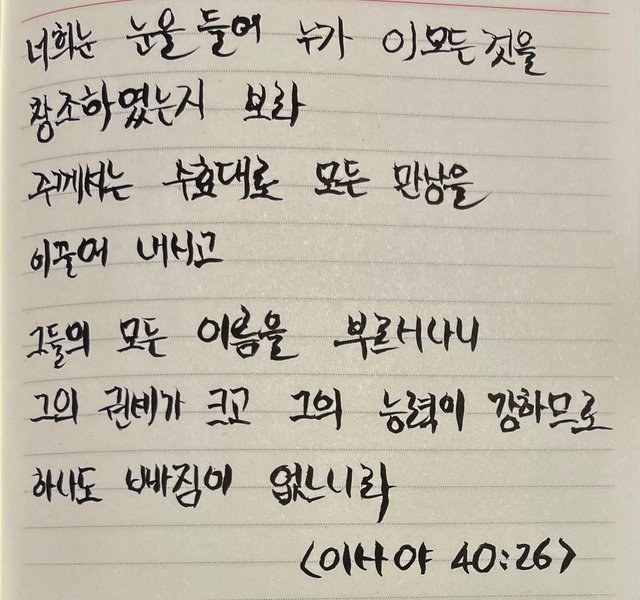 너희는 눈을 들어 누가 이 모든 것을
창조하였는지 보라
주께서는 수효대로 모든 만상을
이끌어 내시고
그들의 모든 이름을 부르시나니
그의 권세가 크고 그의 능력이 강하므로
하나도 빠짐이 없느니라
<이사야 40:26>